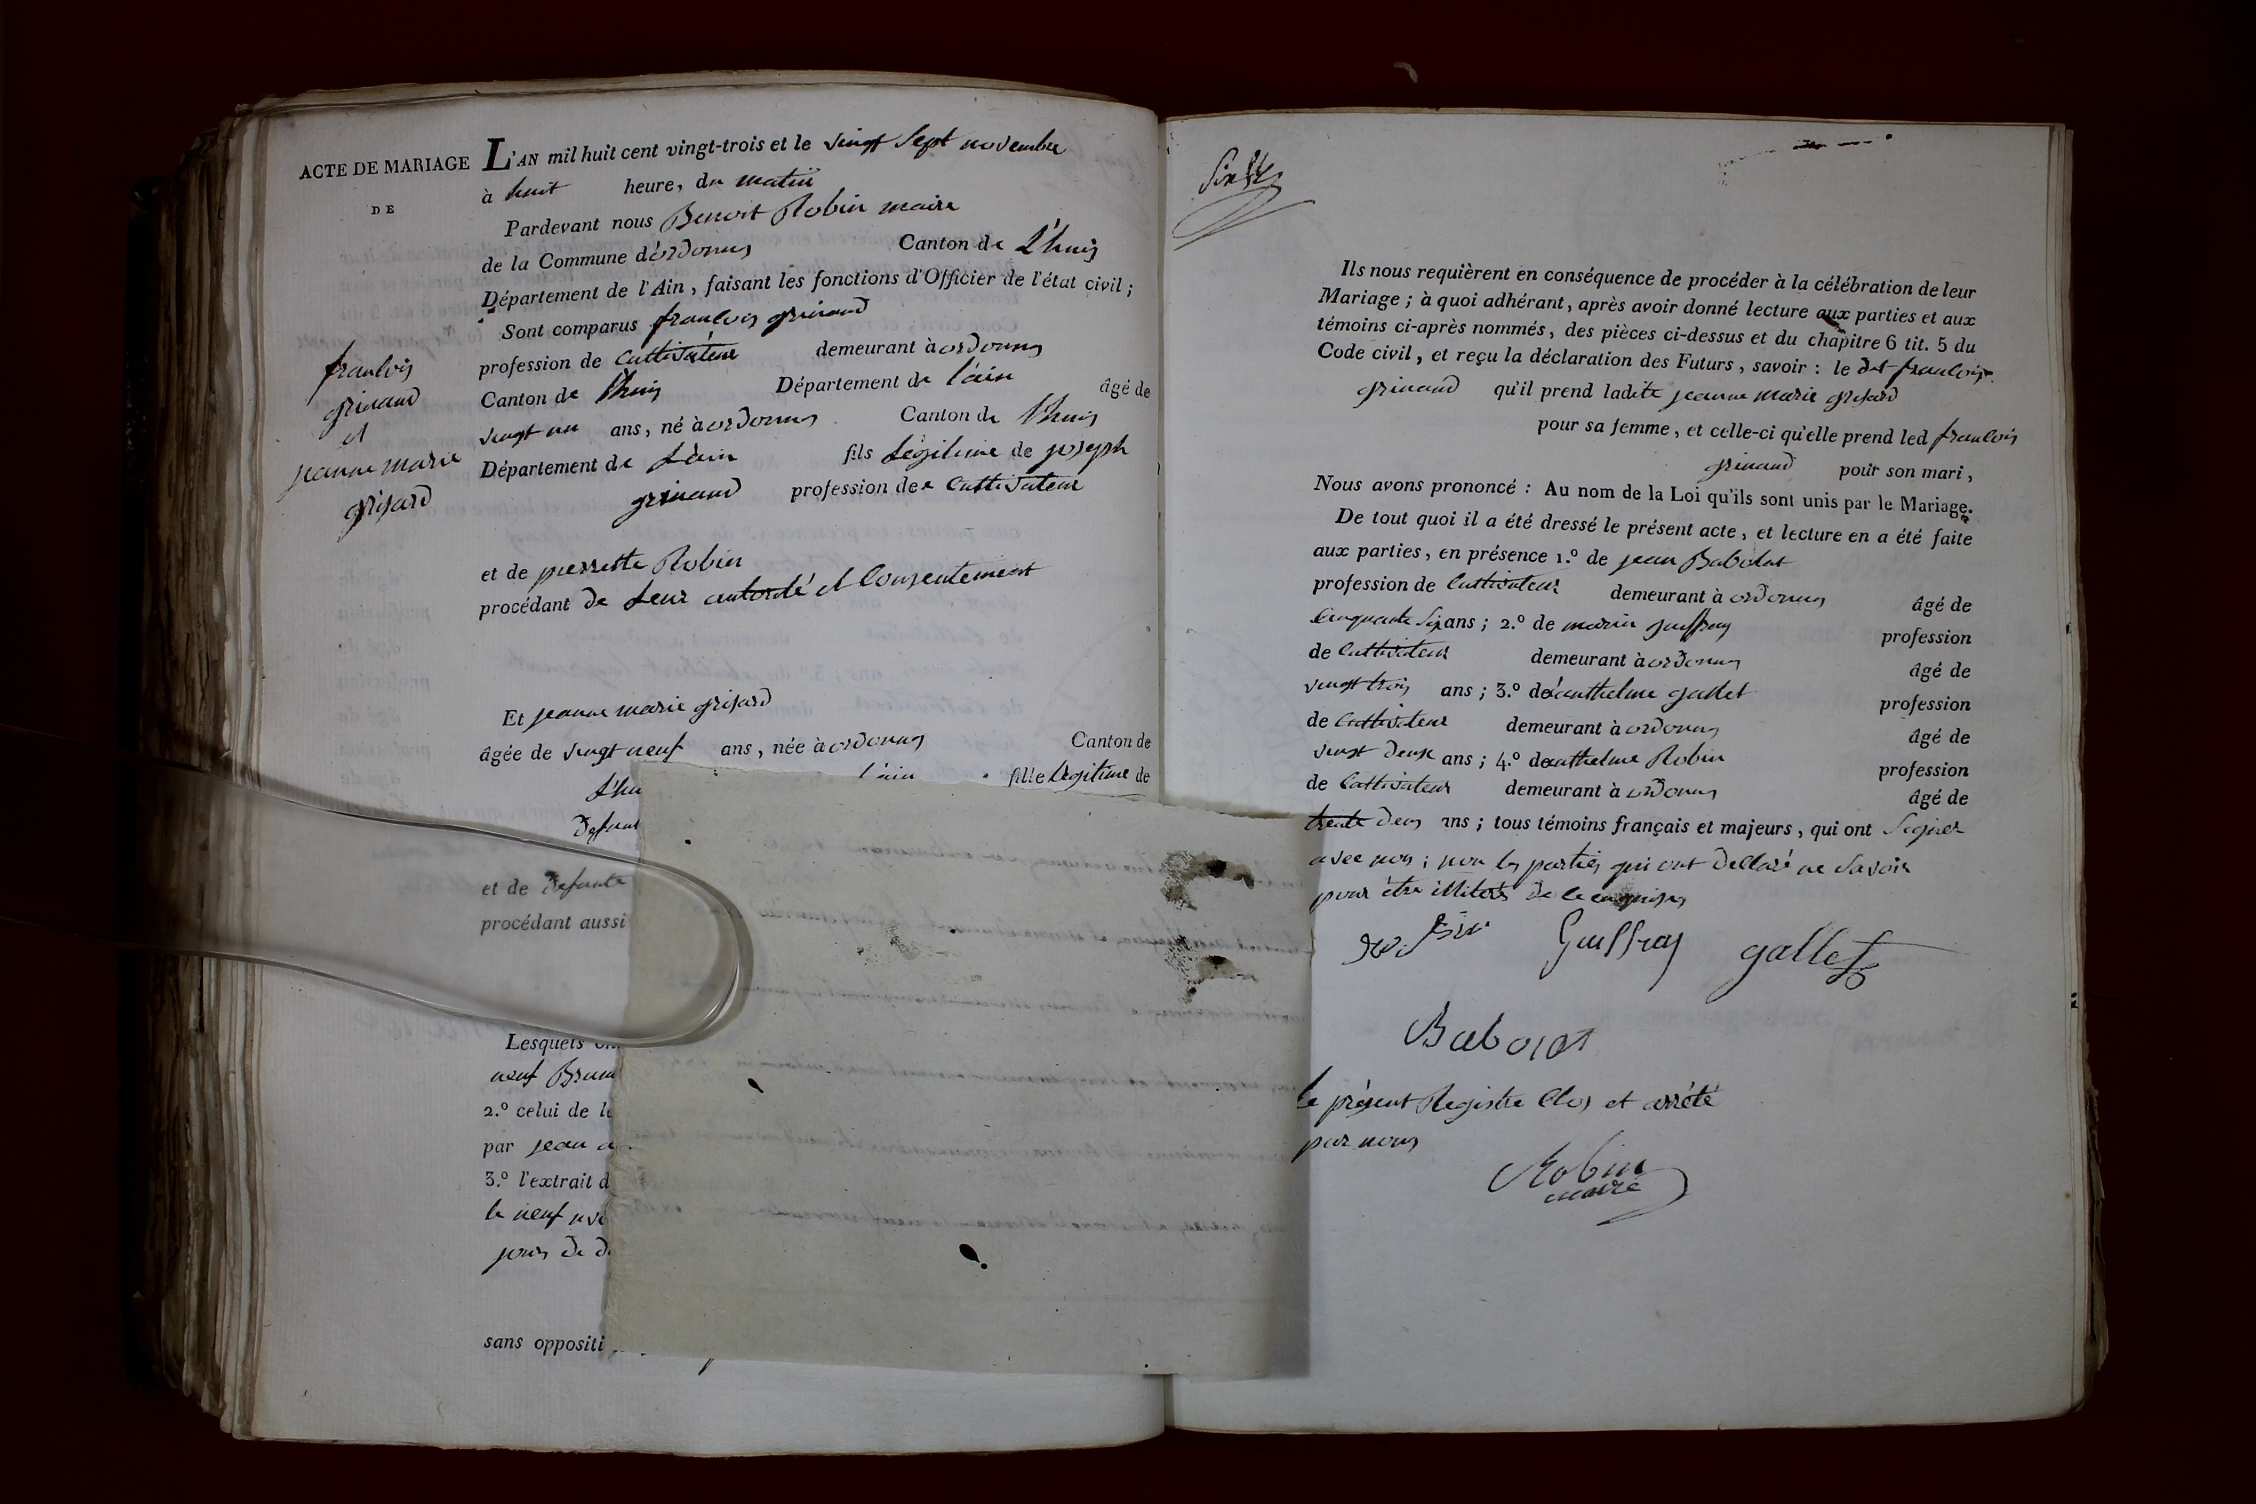 ACTE DE MARIAGE
DE
françois
grinand
et
jeanne marie
grisard
L'AN mil huit cent vingt-trois et le vingt sept novembre
à huit heure, du matin
Pardevant nous Benoit Robin maire
de la Commune d'ordonnas Canton de L'huis
Département de l'Ain, faisant les fonctions d'Officier de l'état civil;
Sont comparus françois grinand
profession de Cultivateur demeurant à ordonnas
Canton de l'huis Département de l'ain âgé de
vingt un ans, né à ordonnas Canton de l'huis
Département de L'ain fils Légitime de joseph
grinand profession de Cultivateur
et de pierrette Robin
procédant de Leur autorité et Consentement
Et jeanne marie grisard
âgée de vingt neuf ans, née à ordonnas Canton de
L'hu l'ain fille legitime de
defunt
et de defunte
procédant aussi
Lesquels
neuf Brum
2.º celui de
par jean
3.º l'extrait d
le neuf
jour de
sans oppositi
Ils nous requièrent en conséquence de procéder à la célébration de leur
Mariage; à quoi adhérant, après avoir donné lecture aux parties et aux
témoins ci-après nommés, des pièces ci-dessus et du chapitre 6 tit. 5 du
Code civil, et reçu la déclaration des Futurs, savoir: le dit françois
grinand qu'il prend ladite jeanne marie grisard
pour sa femme, et celle-ci qu'elle prend led françois
grinand pour son mari,
Nous avons prononcé: Au nom de la Loi qu'ils sont unis par le Mariage.
De tout quoi il a été dressé le présent acte, et lecture en a été faite
aux parties, en présence 1.º de jean Babolat
profession de Cultivateur demeurant à ordonnas âgé de
Cinquante six ans; 2.º de marin guiffray profession
de Cultivateur demeurant à ordonnas âgé de
vingt trois ans; 3.º de anthelme gallet profession
de Cultivateur demeurant à ordonnas âgé de
vingt deux ans; 4.º de anthelme Robin profession
de Cultivateur demeurant à ordonnas âgé de
trente deux ans; tous témoins français et majeurs, qui ont signer
avec nous; non les parties qui ont declaré ne savoir
pour être illiterés de ce enquises
Guiffray gallet
Babolat
le présent Registre Clos et arrêté
par nous
Robin
maire